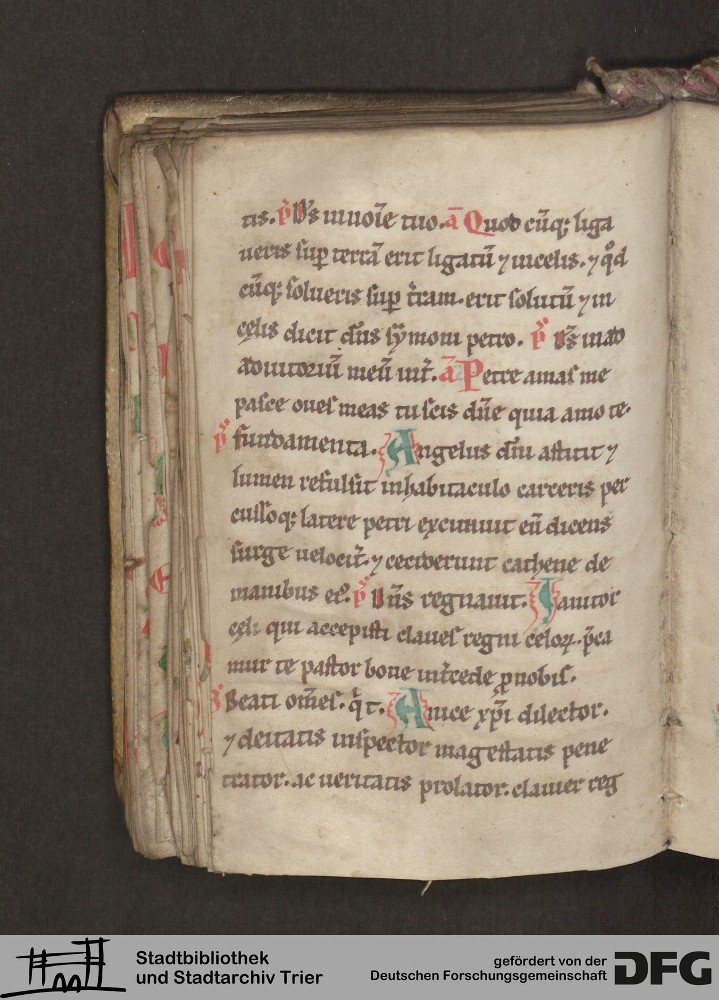 tis. p̄ D̄s in noīe tuo. ā Quod cūq; liga
ueris sup̱ terrā erit ligatū ⁊ in celis. ⁊ qͦd
cūq; solueris sup̱ t̄ram. erit solutū ⁊ in
cęlis dicit dn̄s sẏmoni petro. p̄ D̄s in ad
adiutoriū meū int̄. ā Petre amas me
pasce oues meas tu scis dn̄e quia amo te.
p̄ fundamenta. Angelus dn̄i astitit ⁊
lumen refulsit in habitaculo carceris per
cussoq; latere petri excitauit eū dicens
surge uelocit̄. ⁊ ceciderunt cathene de
manibus ei᷒. p̄ Dn̄s regnauit. Ianitor
cęli qui accepisti claues regni celoꝝ. p̄ca
mur te pastor bone int̄cede ꝓ nobis.
Beati om̄es. q̄ t. Amice xp̄i dilector.
⁊ deitatis inspector magestatis pene
trator. ac ueritatis prolator. clauier reg
Stadtbibliothek
und Stadtarchiv Trier
gefördert von der
Deutschen Forschungsgemeinschaft
DFG